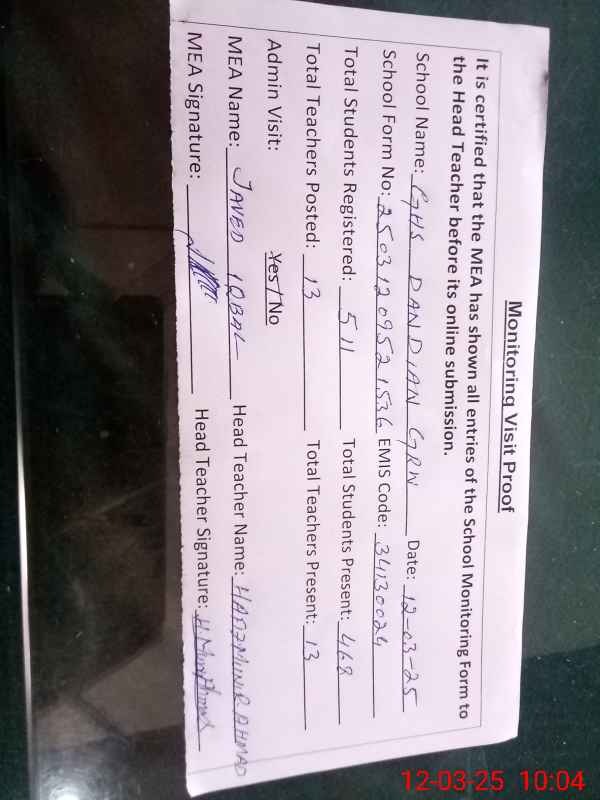 Monitoring Visit Proof
It is certified that the MEA has shown all entries of the School Monitoring Form to
the Head Teacher before its online submission.
School Name: GHS DANDIAN GRW Date: 12-03-25
School Form No: 25031209521536 EMIS Code: 34130024
Total Students Registered: 511 Total Students Present: 468
Total Teachers Posted: 13 Total Teachers Present: 13
Admin Visit: Yes / No
MEA Name: JAVED IQBAL Head Teacher Name: HAFIZ MUNIR AHMAD
MEA Signature: Head Teacher Signature:
12-03-25 10:04